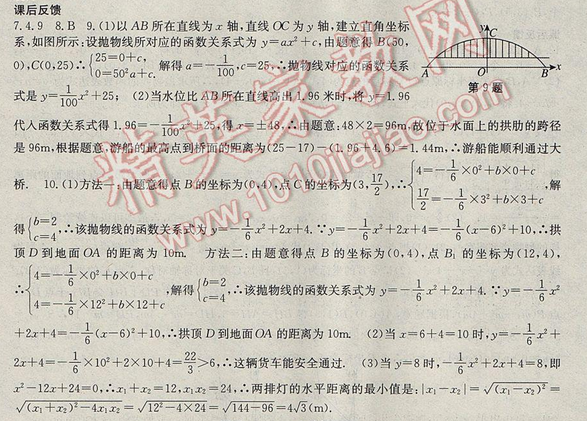 课后反馈
7.4.9 8.B 9.(1)以AB所在直线为x轴,直线OC为y轴,建立直角坐标
系,如图所示:设抛物线所对应的函数关系式为y=ax²+c,由题意得B(50,
0),C(0,25)∴{25=0+c, 0=50²a+c, 解得a=-1/100,c=25,∴抛物线对应的函数关系
式是y=-1/100x²+25; (2)当水位比AB所在直线高出1.96米时,将y=1.96
y C A O B x
第9题
代入函数关系式得1.96=-1/100x²+25,得x=±48,∴由题意:48×2=96m,故位于水面上的拱肋的跨径
是96m,根据题意,游船的最高点到桥面的距离为(25-17)-(1.96+4.6)=1.44m,∴游船能顺利通过大
桥. 10.(1)方法一:由题意得点B的坐标为(0,4),点C的坐标为(3,17/2),∴{4=-1/6×0²+b×0+c 17/2=-1/6×3²+b×3+c,解
得{b=2 c=4,∴该抛物线的函数关系式为y=-1/6x²+2x+4.∵y=-1/6x²+2x+4=-1/6(x-6)²+10,∴拱
顶D到地面OA的距离为10m. 方法二:由题意得点B的坐标为(0,4),点B₁的坐标为(12,4),
∴{4=-1/6×0²+b×0+c 4=-1/6×12²+b×12+c,解得{b=2 c=4,∴该抛物线的函数关系式为y=-1/6x²+2x+4.∵y=-1/6x²
+2x+4=-1/6(x-6)²+10,∴拱顶D到地面OA的距离为10m. (2)当x=6+4=10时,y=-1/6x²+
2x+4=-1/6×10²+2×10+4=22/3>6,∴这辆货车能安全通过. (3)当y=8时,-1/6x²+2x+4=8,即
x²-12x+24=0,∴x₁+x₂=12,x₁x₂=24,∴两排灯的水平距离的最小值是:|x₁-x₂|=√(x₁-x₂)²=
√(x₁+x₂)²-4x₁x₂=√12²-4×24=√144-96=4√3(m).
精英家教网
www.1010jiajiao.com